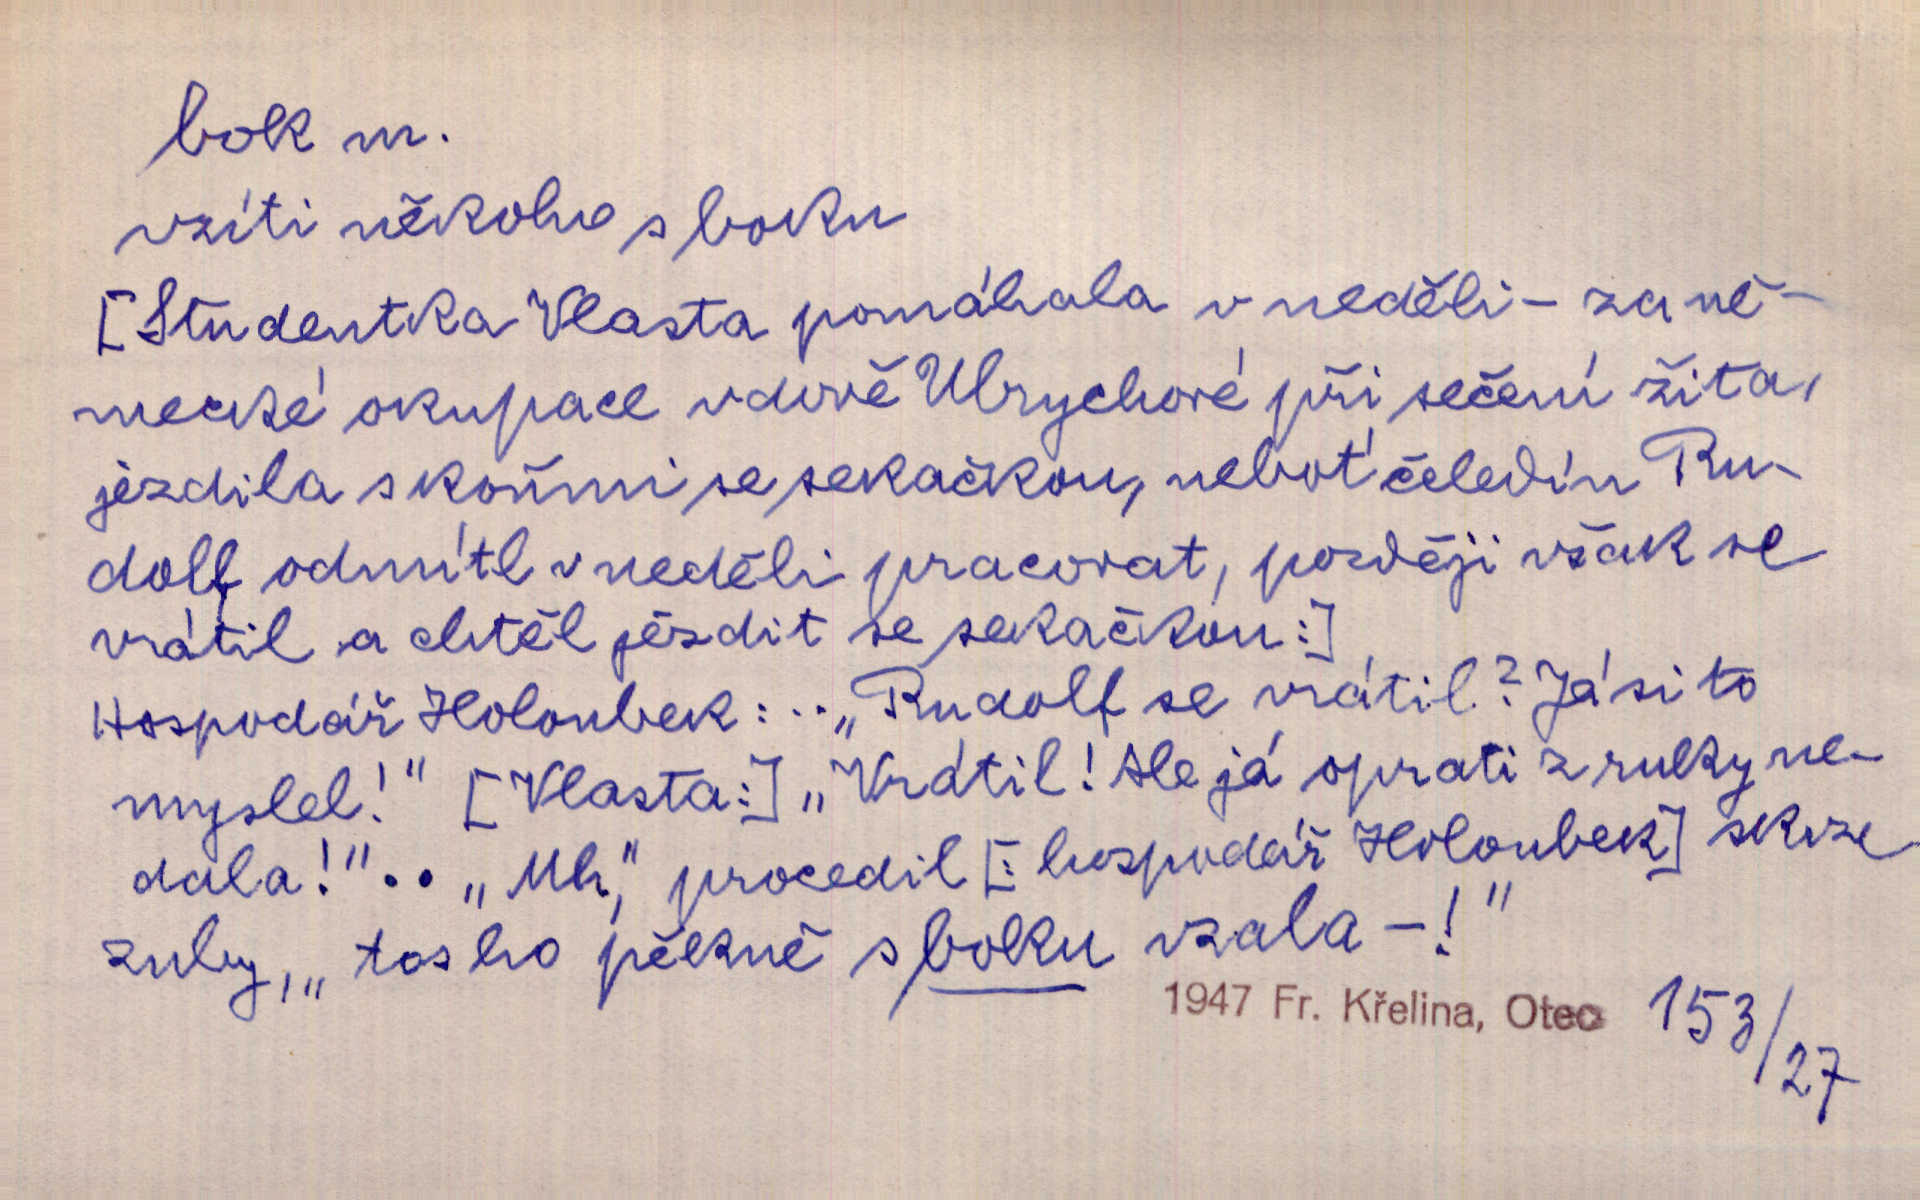 bok m.
vzíti někoho s boku
[Studentka Vlasta pomáhala v neděli – za ně-
mecké okupace vdově Ulrychové při sečení žita,
jezdila s koňmi se sekačkou, neboť čeledín Ru-
dolf odmítl v neděli pracovat, později však se
vrátil a chtěl jezdit se sekačkou:]
Hospodář Holoubek: .. „Rudolf se vrátil? Já si to
myslel!" [Vlasta:] „Vrátil! Ale já oprati z ruky ne-
dala!" .. „Mh," procedil [: hospodář Holoubek] skrze
zuby, „tos ho pěkně s boku vzala –!"
1947 Fr. Křelina, Otec 153/27